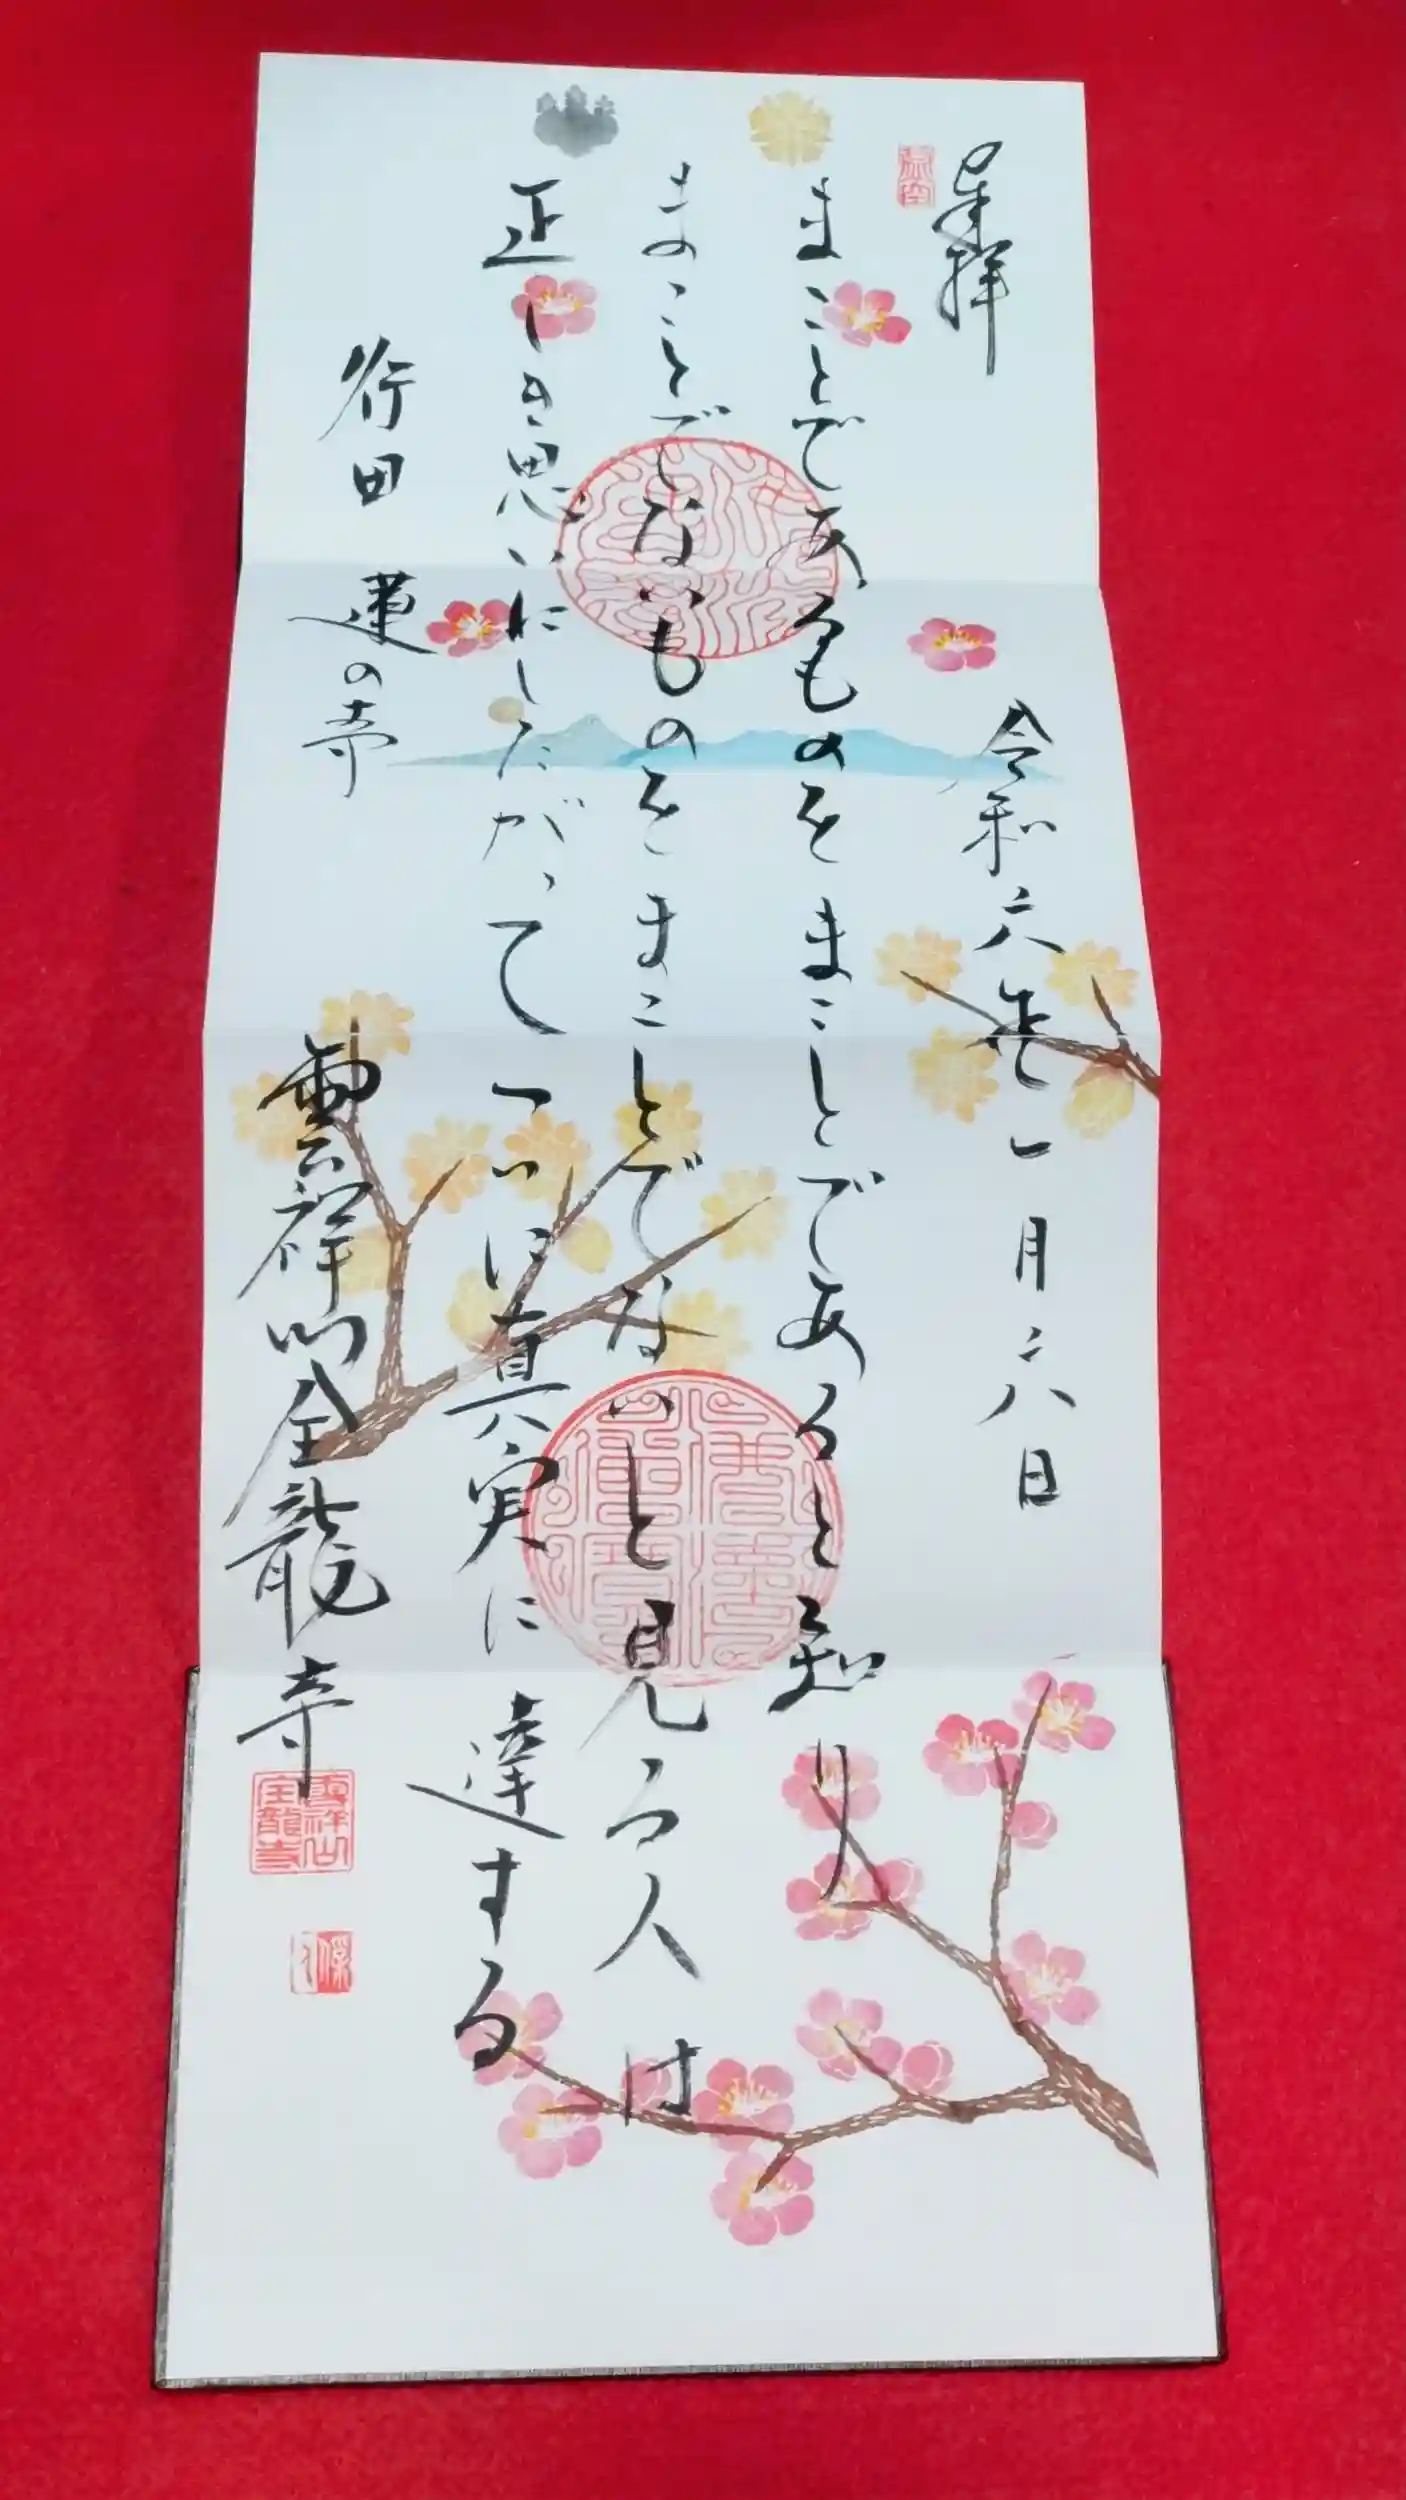 奉拝
令和六年一月二八日
まことであるものをまことであると知り
まことでないものをまことでないと見る人は
正しき思いにしたがってついに真実に達する
行田 蓮の寺
雲祥山全龍寺
雲祥山全龍寺